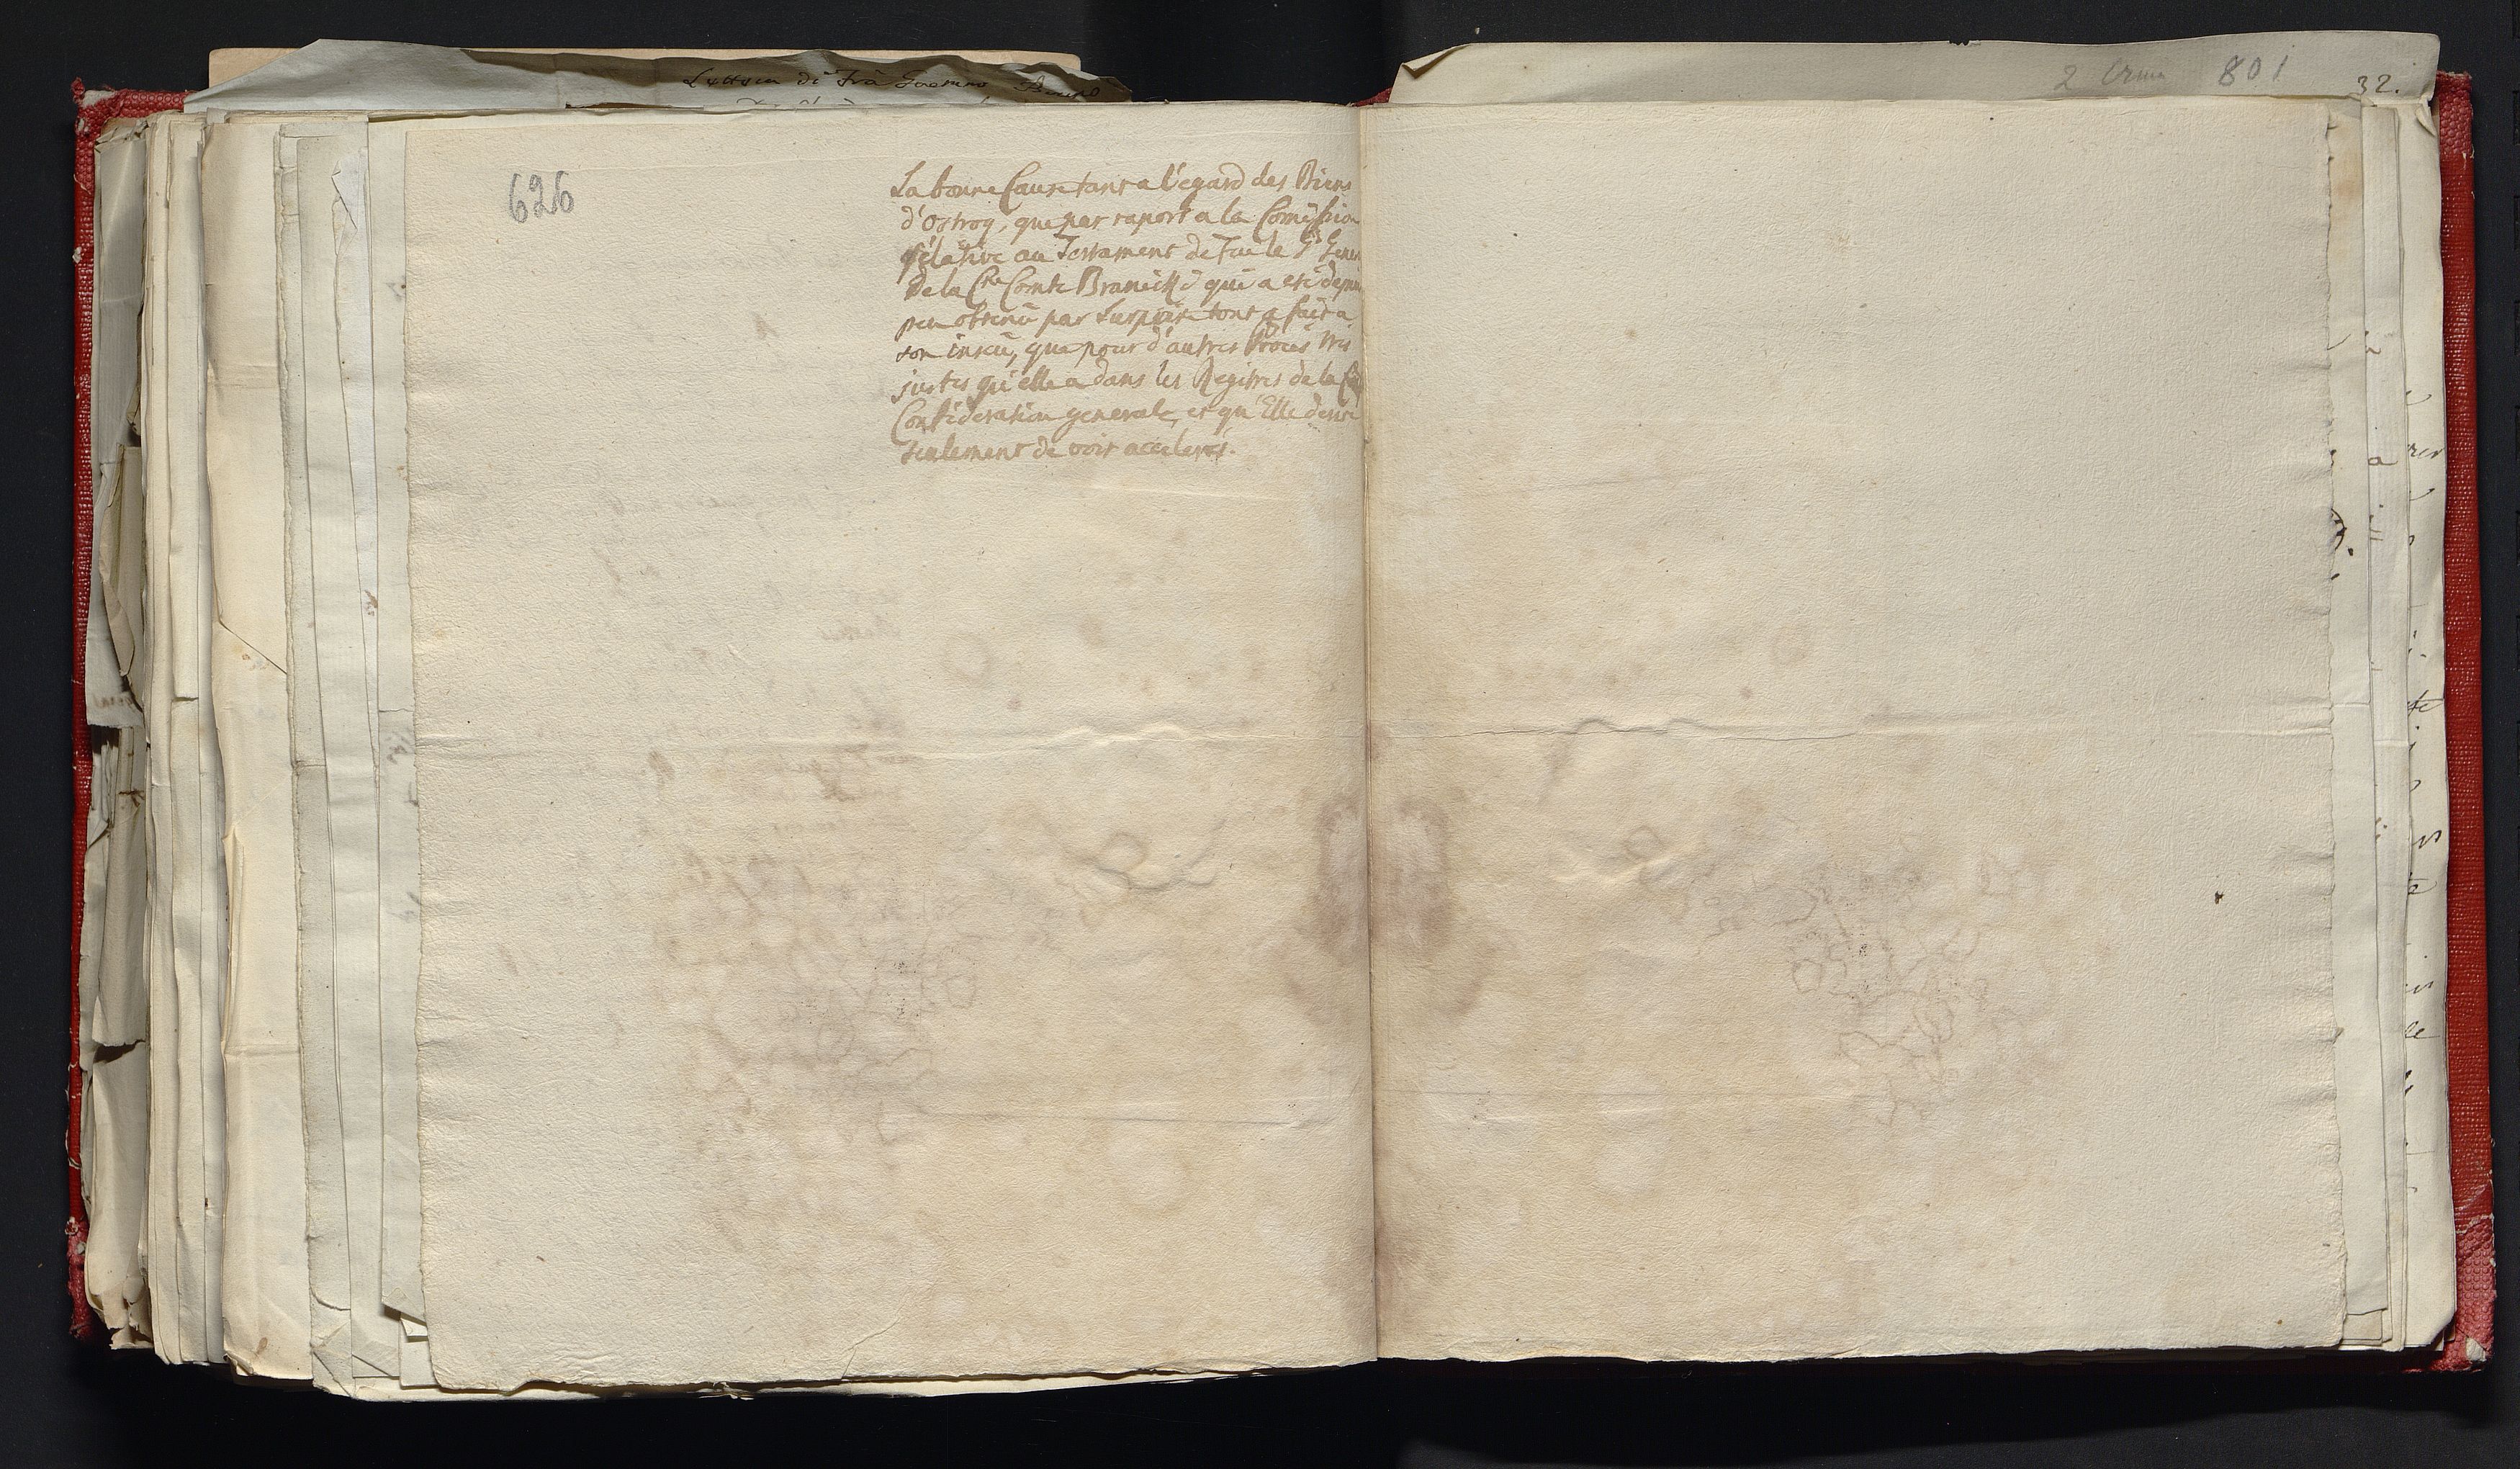 Lettera di Frà
2 801
32.
626
La bonne Cause tant a l'egard des Biens
d'Ostrog, que par raport a la Comission
rélative au Testament de Fue le Gd Gener
de la Cne Comte Branicki qui a eté depuis
peu obtenu par Surprise tout a fait a
son insçu, que pour d'autres Procés trés
justes qu'elle a dans les Regitres de la
Confideration generale, et qu'Elle desire
seulement de voir accelerés.